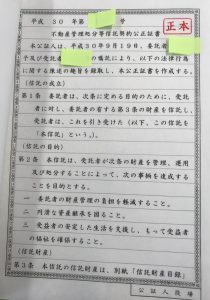 平成30年第 号
正本
不動産管理処分等信託契約公正証書
本公証人は、平成30年9月19日、委託者
子及び受託者 の嘱託により、以下の法律行為
に関する陳述の趣旨を録取し、本公正証書を作成する。
(信託の成立)
第1条 委託者は、次条に定める目的のために、受託
者に対し、委託者の有する第3条の財産を信託し、
受託者は、これを引き受けた(以下、この信託を
「本信託」という。)。
(目的)
第2条 本信託は、受託者が次条の財産を管理、運用
及び処分することによって、次の事柄を達成する
ことを目的とする。
一 委託者の財産管理の負担を軽減すること。
二 円滑な資産継承を図ること。
三 受益者の安定した生活を支援し、もって受益者
の福祉を確保すること。
(信託財産)
第3条 本信託の信託財産は、別紙「信託財産目録」
公証人役場